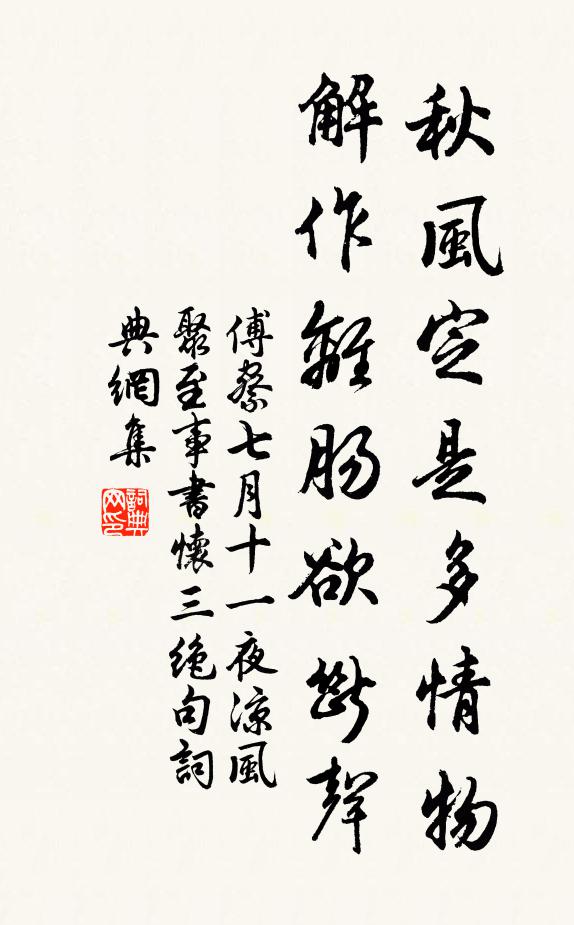 秋風定是多情物
解作離腸欲斷聲
傅察七月十一夜涼風
聚至事書懷三絶句詞
典網集
詞典網印